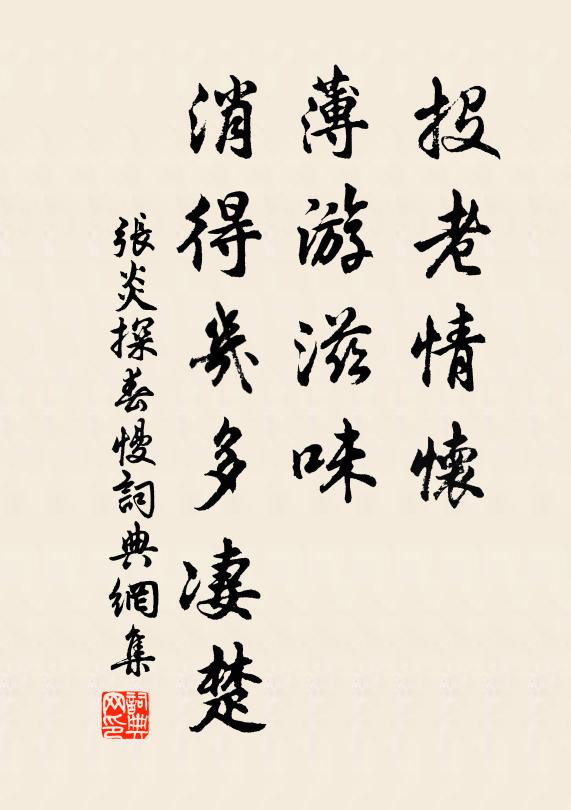 投老情懷
薄游滋味
消得幾多凄楚
張炎探春慢詞典網集
詞典网印